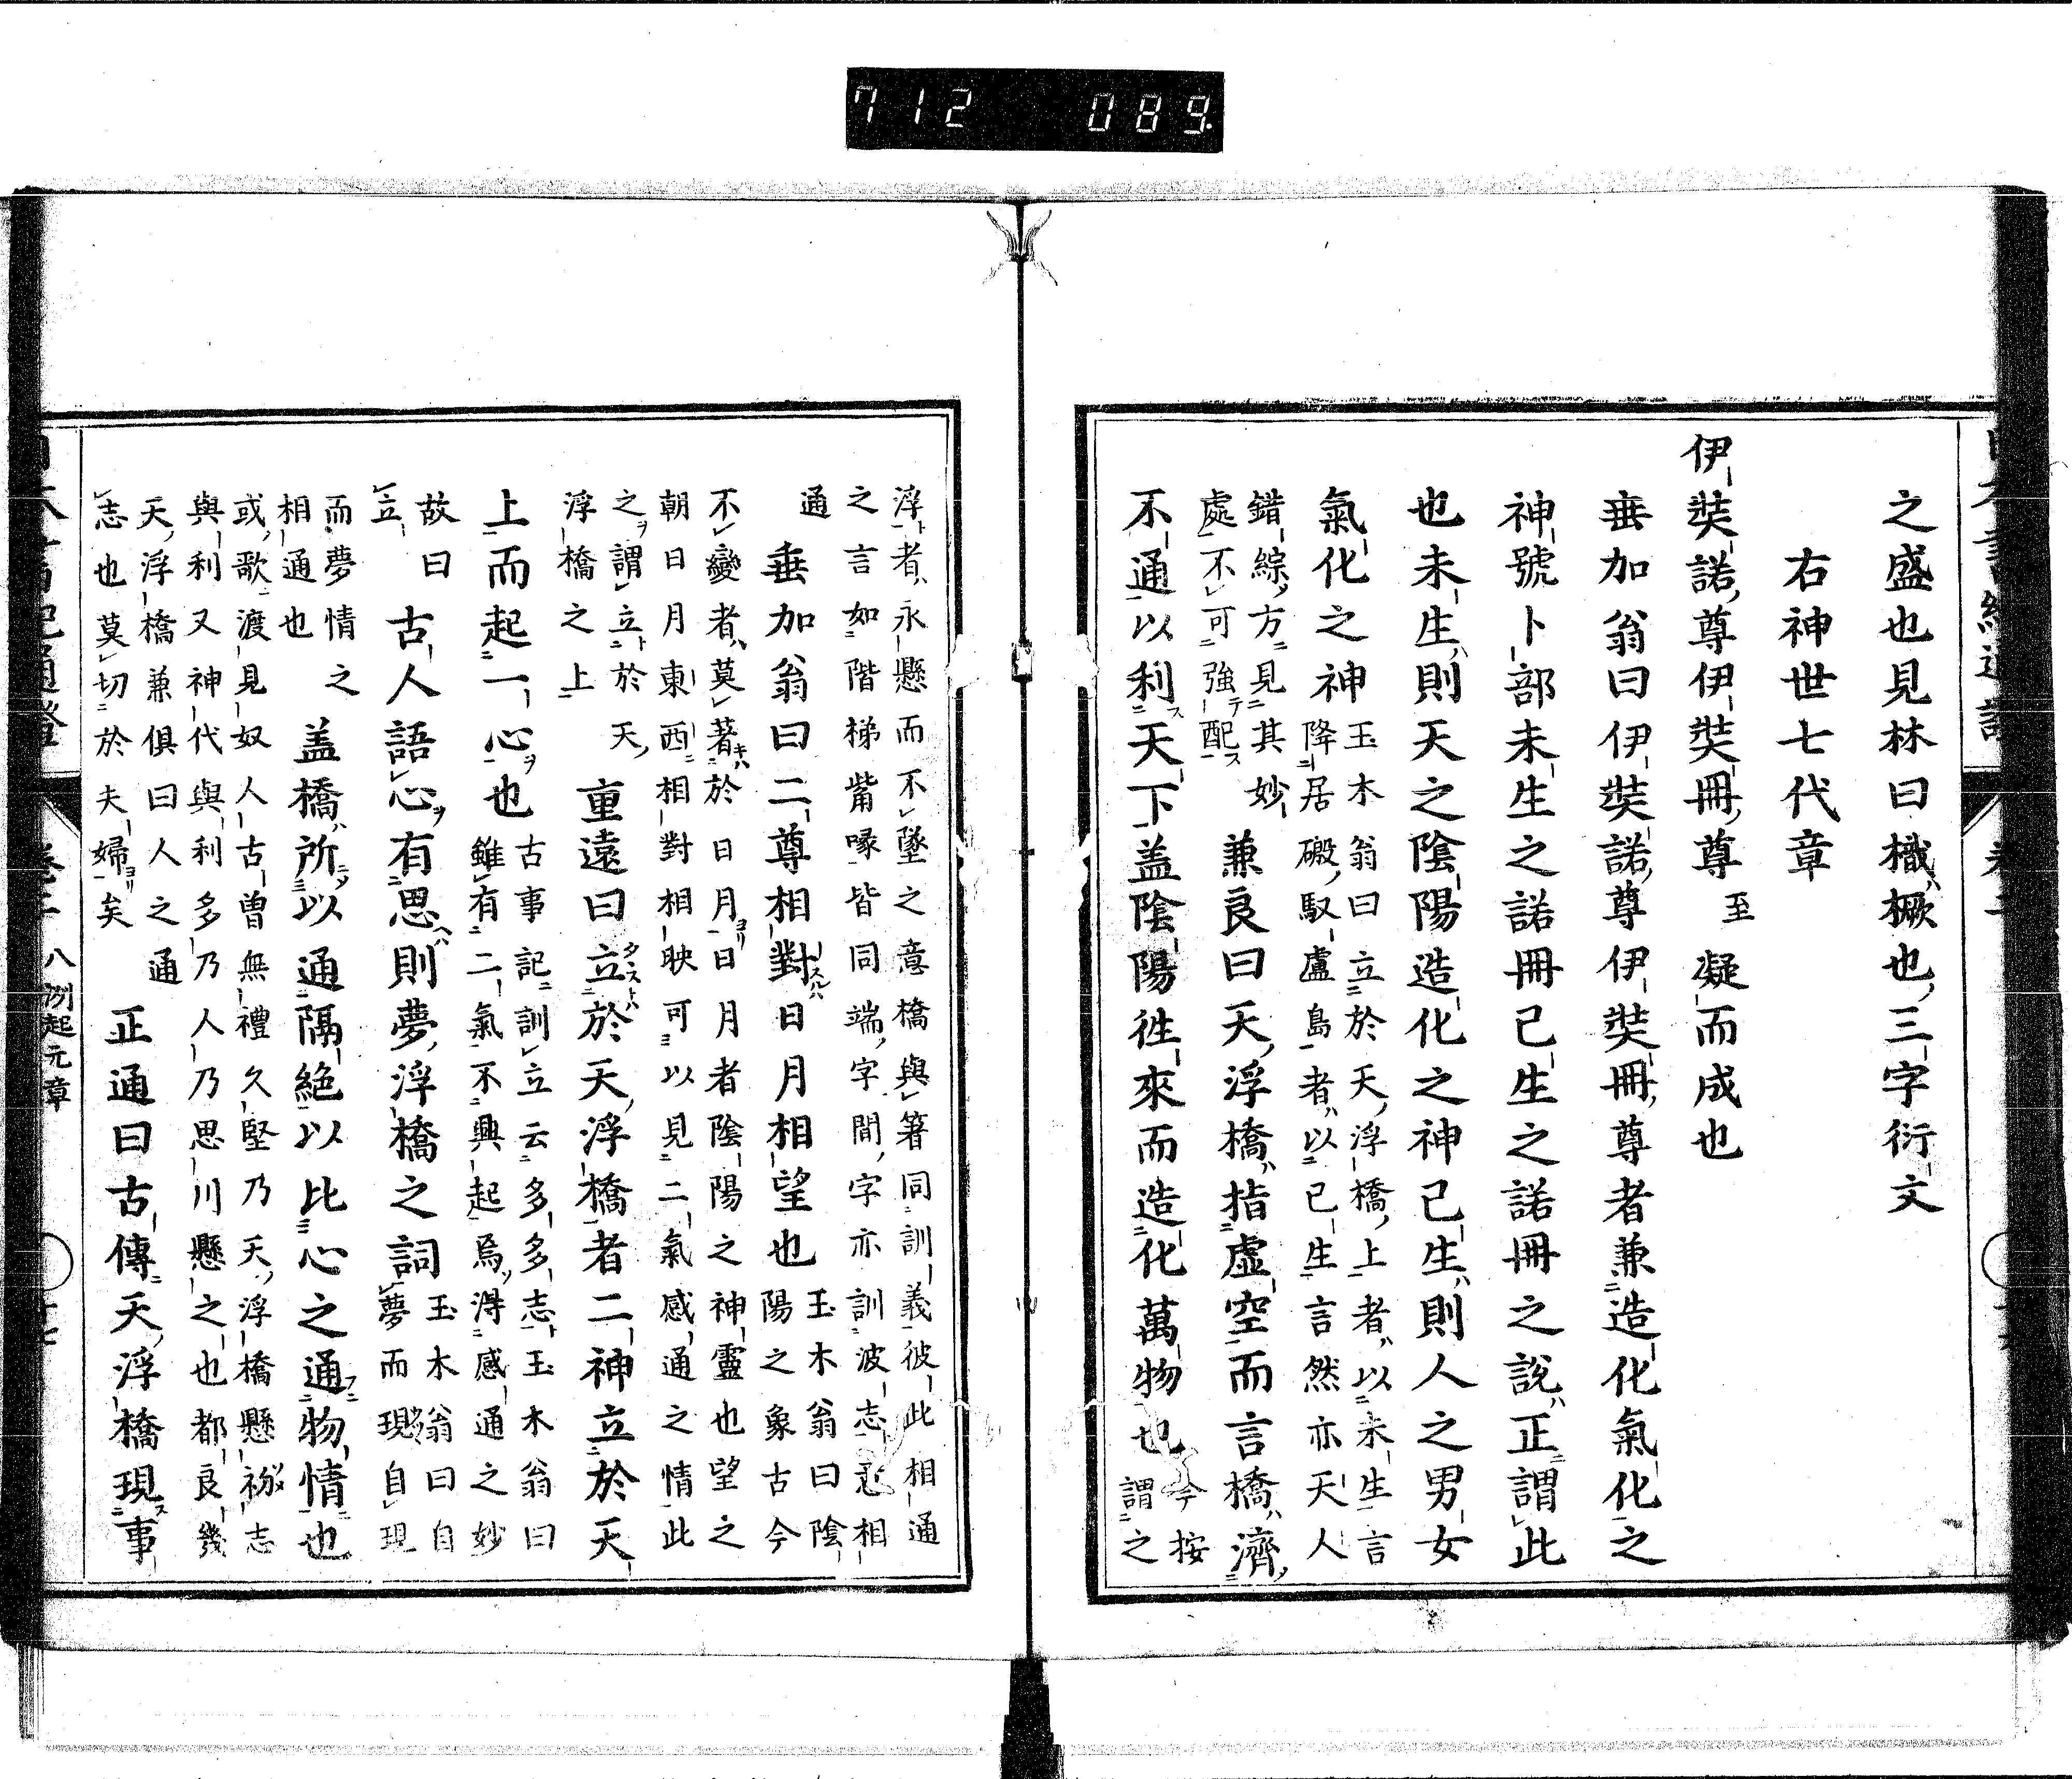 712 089.
之盛也見林曰檝橛也三字衍文
右神世七代章
伊弉諾尊伊弉冊尊至凝而成也
垂加翁曰伊弉諾尊伊弉冊尊者兼造化氣化之
神號卜部未生之諾冊已生之諾冊之說正謂此
也未生則天之陰陽造化之神已生則人之男女
氣化之神
玉木翁曰立於天浮橋上者以未生言
降居磤馭盧島者以已生言然亦天人
錯綜方見其妙
處不可強配
兼良曰天浮橋指虛空而言橋濟
不通以利天下盖陰陽徃來而造化萬物也
今按
謂之
浮者永懸而不墜之意橋與箸同訓義彼此相通
之言如階梯觜喙皆同端字間字亦訓波志相
通
垂加翁曰二尊相對日月相望也
玉木翁曰陰
陽之象古今
不變者莫著於日月日月者陰陽之神靈也望之
朝日月東西相對相映可以見二氣感通之情此
之謂立於天
浮橋之上
重遠曰立於天浮橋者二神立於天
上而起一心也
古事記訓立云多多志玉木翁曰
雖有二氣不興起焉得感通之妙
故曰
立
古人語心有思則夢浮橋之詞
玉木翁曰自
夢而現自現
而夢情之
相通也
盖橋所以通隔絕以比心之通物情也
或歌渡見奴人古曽無禮久堅乃天浮橋懸志
與利又神代與利多乃人乃思川懸之也都良幾
天浮橋兼俱曰人之通
志也莫切於夫婦矣
正通曰古傳天浮橋現事
卷二 八洲起元章